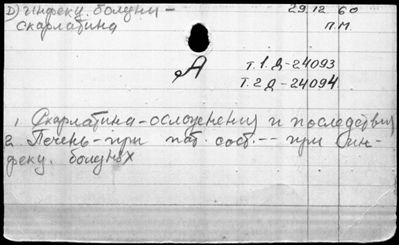 D) Инфекц. болезни – 29.12 60
скарлатина П.М.
А т.1 Д-24093
т.2 Д-24094
1. Скарлатина – осложнения и последствия
2. Печень – при пат. сост. -- при ин-
фекц. болезнях